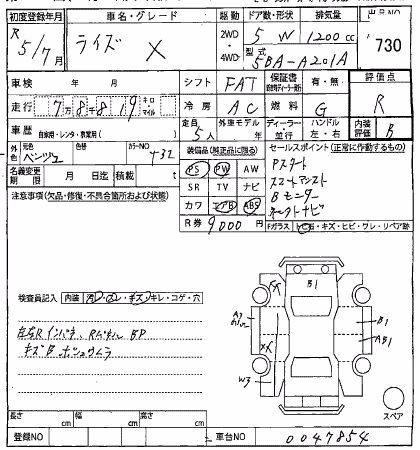 初度登録年月 車名・グレード 駆動 ドア数・形状 排気量
R 5/7月 ライズ X 2WD・4WD 5 W 1200cc 730
型式 5BA-A201A
車検 年 月 シフト FAT 保証書 有・無 評価点
走行 7万8千819 キロ マイル 冷房 AC 燃料 G R
車歴 自家用・レンタ・教習用( ) 定員 5人 外車モデル 年 ディーラー・並行 ハンドル 左・右 内装評価 B
外色 元色 色替 カラーNO 432
装備品(純正品に限る) セールスポイント(正常に作動するもの)
名義変更期限 月 日迄 積載 t PS PW AW Pスタート
注意事項(欠品・修復・不具合箇所および状態) SR TV ナビ スマートアシスト
カワ エアB ABS Bモニター
R券 9000円 ナビ
Fガラス 飛石・キズ・ヒビ・ワレ・リペア跡
検査員記入 内装 キズ・キレ・コゲ・穴
左右Rインパネ、Rパネル BP
キズB
B1
B1
AB1
W3
スペア
長さ cm 幅 cm 高さ cm
登録NO 車台NO 0047854